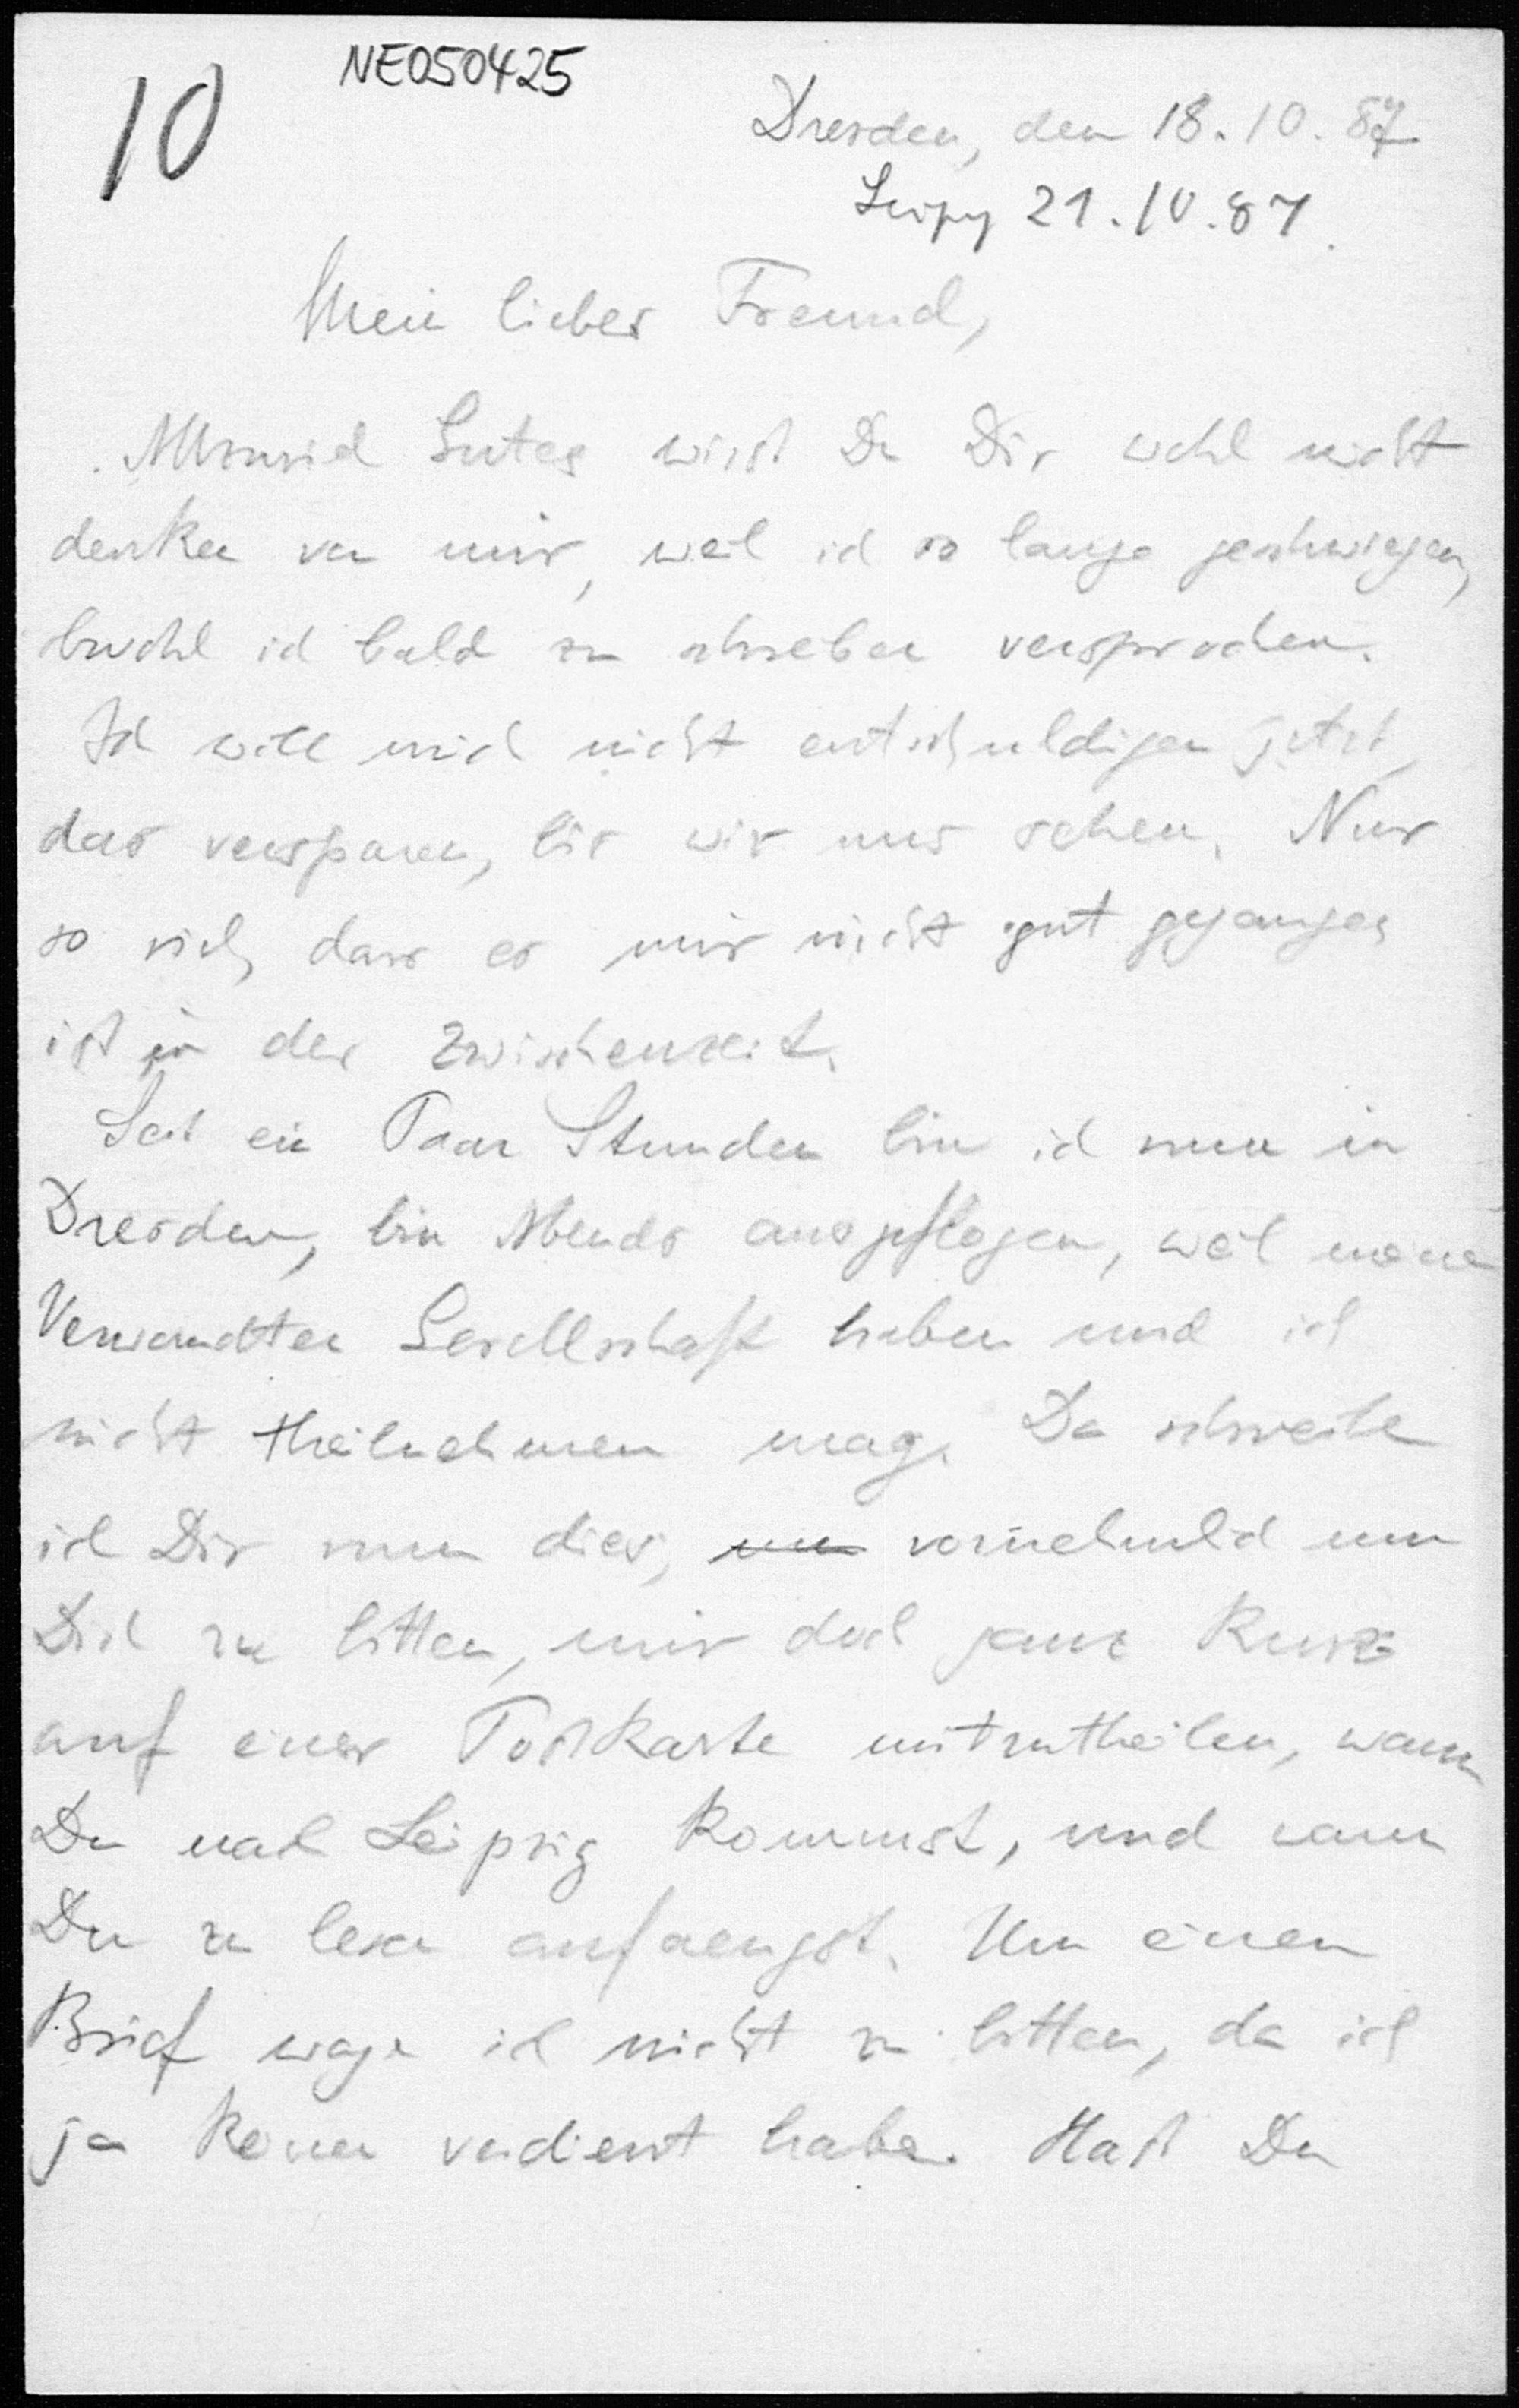 NE050425
10
Dresden, den 18.10.87
Leipzig 21.10.87.
Mein lieber Freund,
Allzuviel Gutes wirst Du Dir wohl nicht
denken von mir, weil ich so lange geschwiegen,
obwohl ich bald zu schreiben versprochen.
Ich will mich nicht entschuldigen jetzt,
das versparen, bis wir uns sehen. Nur
so viel, dass es mir nicht gut gegangen
ist in der Zwischenzeit.
Seit ein Paar Stunden bin ich nun in
Dresden, bin Abends ausgeflogen, weil meine
Verwandten Gesellschaft haben und ich
nicht theilnehmen mag. Da schreibe
ich Dir nun dies, um vornehmlich um
Dich zu bitten, mir doch ganz kurz
auf einer Postkarte mitzutheilen, wann
Du nach Leipzig kommst, und wann
Du zu lesen anfaengst. Um einen
Brief wage ich nicht zu bitten, da ich
ja keinen verdient habe. Hast Du